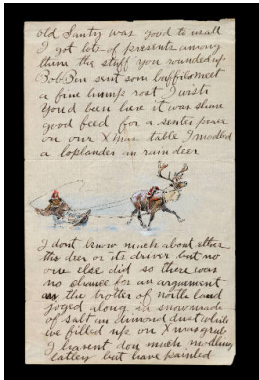 old Santy was good to us all
I got lots of presents among
them the stuff you rounded up
Bob Ben sent som buffilo meet
a fine hump rost I wish
you'd been here it was shure
good feed for a center peace
on our X mas table I modled
a loplander an rain deer
I dont know much about ether
the deer or its driver but no
one else did so there was
no chance for an argument
as the trotter of north land
joged along in snow made
of salt an dimond dust while
we filled up on X mas grub
I havent don much modling
latley but have painted